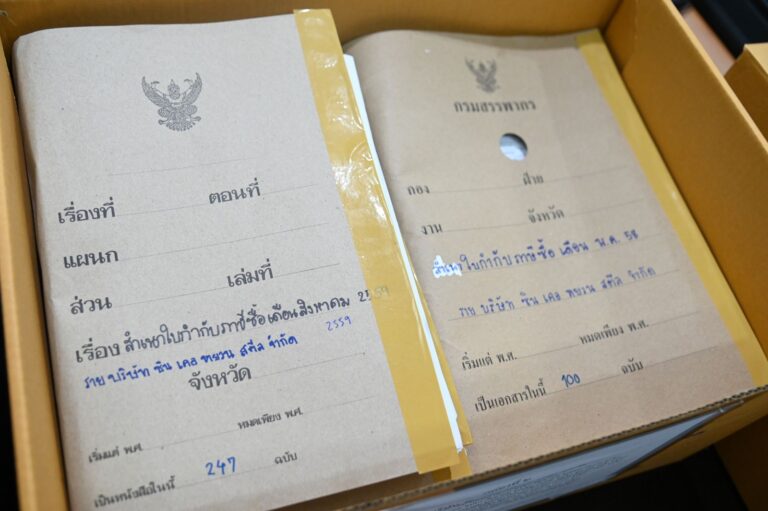 เรื่องที่ ตอนที่
แผนก
ส่วน เล่มที่
เรื่อง สำเนาใบกำกับภาษีซื้อเดือนสิงหาคม 2559
ราย บริษัท ซิน เคอ หยวน สตีล จำกัด 2559
จังหวัด
เริ่มแต่ พ.ศ. หมดเพียง พ.ศ.
เป็นหนังสือในนี้ 247 ฉบับ
กรมสรรพากร
กอง ฝ่าย
งาน จังหวัด
สำเนาใบกำกับภาษีซื้อ เดือน พ.ค. 58
ราย บริษัท ซิน เคอ หยวน สตีล จำกัด
เริ่มแต่ พ.ศ. หมดเพียง พ.ศ.
เป็นเอกสารในนี้ 100 ฉบับ